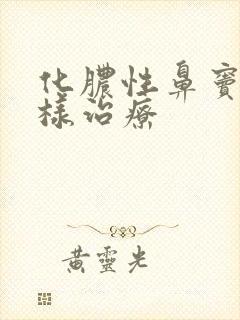 化膿性鼻竇
樣治療
黃靈光